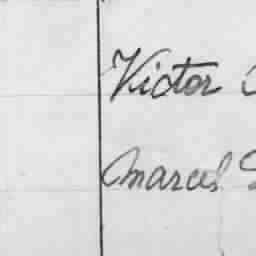 Victor
Marcel